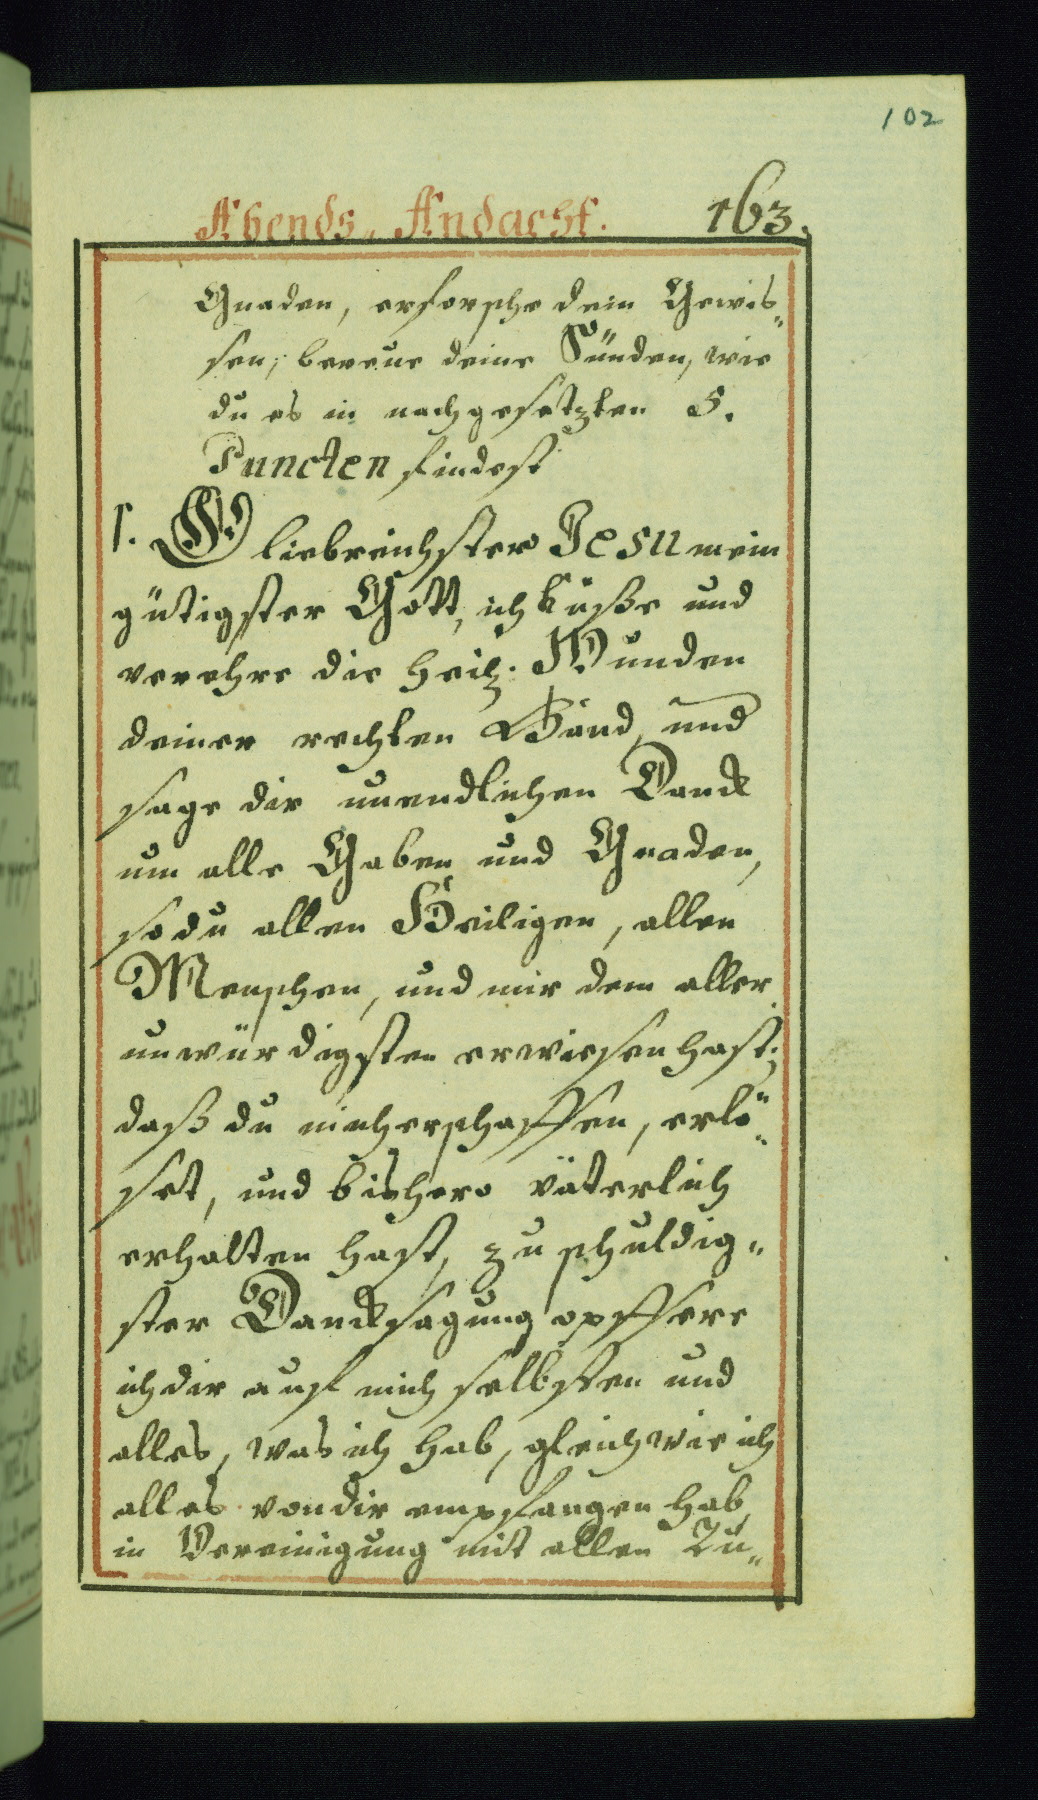 102
Abends-Andacht. 163.
Gnaden, erforsche dein Gewis-
sen, bereue deine Sünden, wie
du es in nachgesetzten 5.
Puncten findest
1. O liebreichster Jesu mein
gütigster Gott, ich küße und
verehre die heil: Wunden
deiner rechten Hand, und
sage dir unendlichen Danck
um alle Gaben und Gnaden,
so du allen Heiligen, allen
Menschen, und mir dem aller
unwürdigsten erwiesen hast;
daß du mich erschaffen, erlö-
set, und bishero väterlich
erhalten hast, zu schuldig-
ster Dancksagung opffere
ich dir auf mich selbsten und
alles, was ich hab, gleichwie ich
alles von dir empfangen hab,
in Vereinigung mit allen Tu-